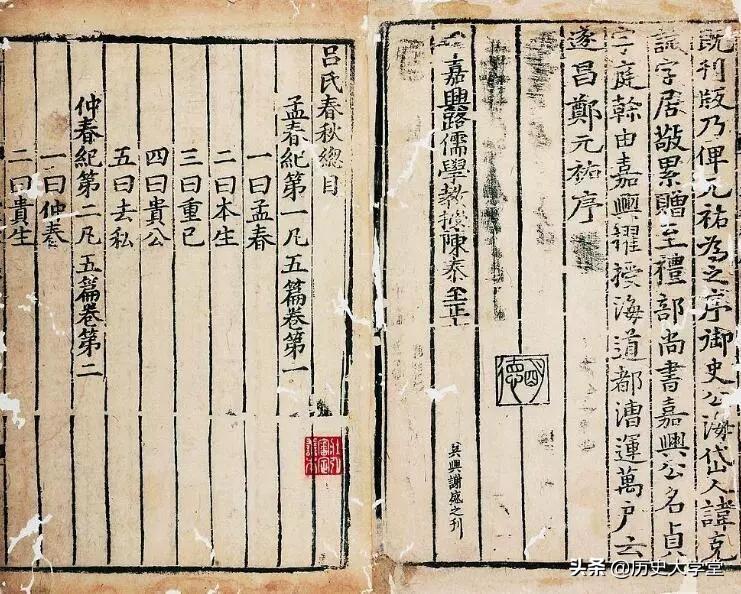 既刋版乃俾元祐為之序御史公海岱人諱克
誠字居敬累贈至禮部尚書嘉興公名貞
字庭榦由嘉興擢授海道都漕運萬户云
遂昌鄭元祐序
嘉興路儒學教授陳泰至正
吴興謝盛之刊
吕氏春秋總目
孟春紀第一凡五篇卷第一
一曰孟春
二曰本生
三曰重己
四曰貴公
五曰去私
仲春紀第二凡五篇卷第二
一曰仲春
二曰貴生
头条 @历史大学堂